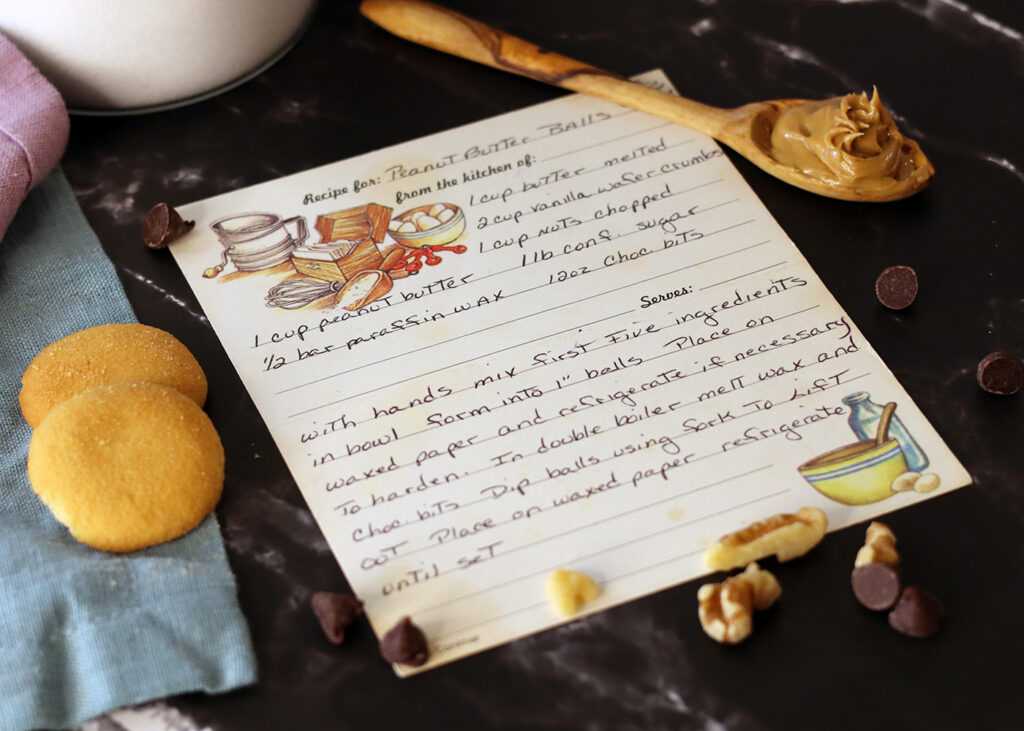 Recipe for: Peanut Butter Balls
from the kitchen of:
1 cup butter melted
2 cup vanilla wafer crumbs
1 cup nuts chopped
1 cup peanut butter 1 lb conf. sugar
1/2 bar paraffin wax 12oz choc bits
Serves:
with hands mix first five ingredients
in bowl form into 1" balls Place on
waxed paper and refrigerate if necessary
To harden. In double boiler melt wax and
choc bits Dip balls using fork To Lift
out Place on waxed paper refrigerate
until set